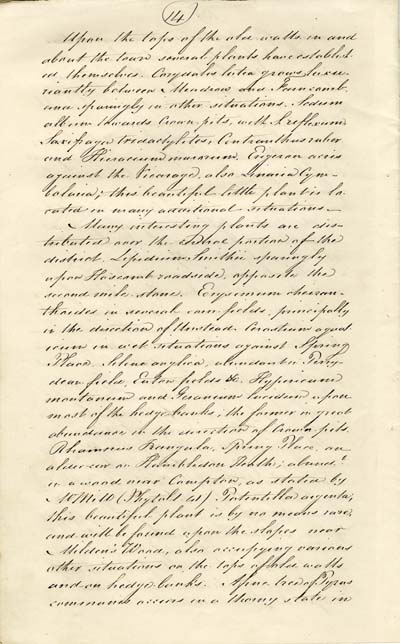 114
Upon the tops of the old walls in and
about the town several plants have establish
ed themselves. Corydalis lutea grows luxu-
riantly between Meadrow and Farncomb,
and sparingly in other situations. Sedum
album towards Crown pits, with S. reflexum
Saxifraga tridactylites, Centranthus ruber
and Hieracium murorum. Erigeron acris
against the Vicarage, also Linaria Cym-
balaria; this beautiful little plant is lo-
cated in many additional situations.
Many interesting plants are dis-
tributed over the entire portion of the
district. Lepidium Smithii sparingly
upon Hascomb roadside, opposite the
second mile stone. Erysimum cheiran-
thoides in several corn fields, principally
in the direction of Unstead. Cerastium aquat
icum in wet situations against Spring
Place. Silene anglica, abundant in Perry
dean field, Eaton fields &c. Hypericum
montanum and Geranium lucidum upon
most of the hedge banks, the former in great
abundance in the direction of Crown pits.
Rhamnus Frangula, Spring Place, an
alder-car on Hambledon Heath; abund.t
in a wood near Compton, as stated by
Mr Mill (Phytolt 45) Potentilla argentea,
this beautiful plant is by no means rare,
and will be found upon the slopes near
Milden's Wood, also occupying various
other situations on the tops of old walls
and on hedge banks. A fine tree of Pyrus
communis occurs in a thorny state in